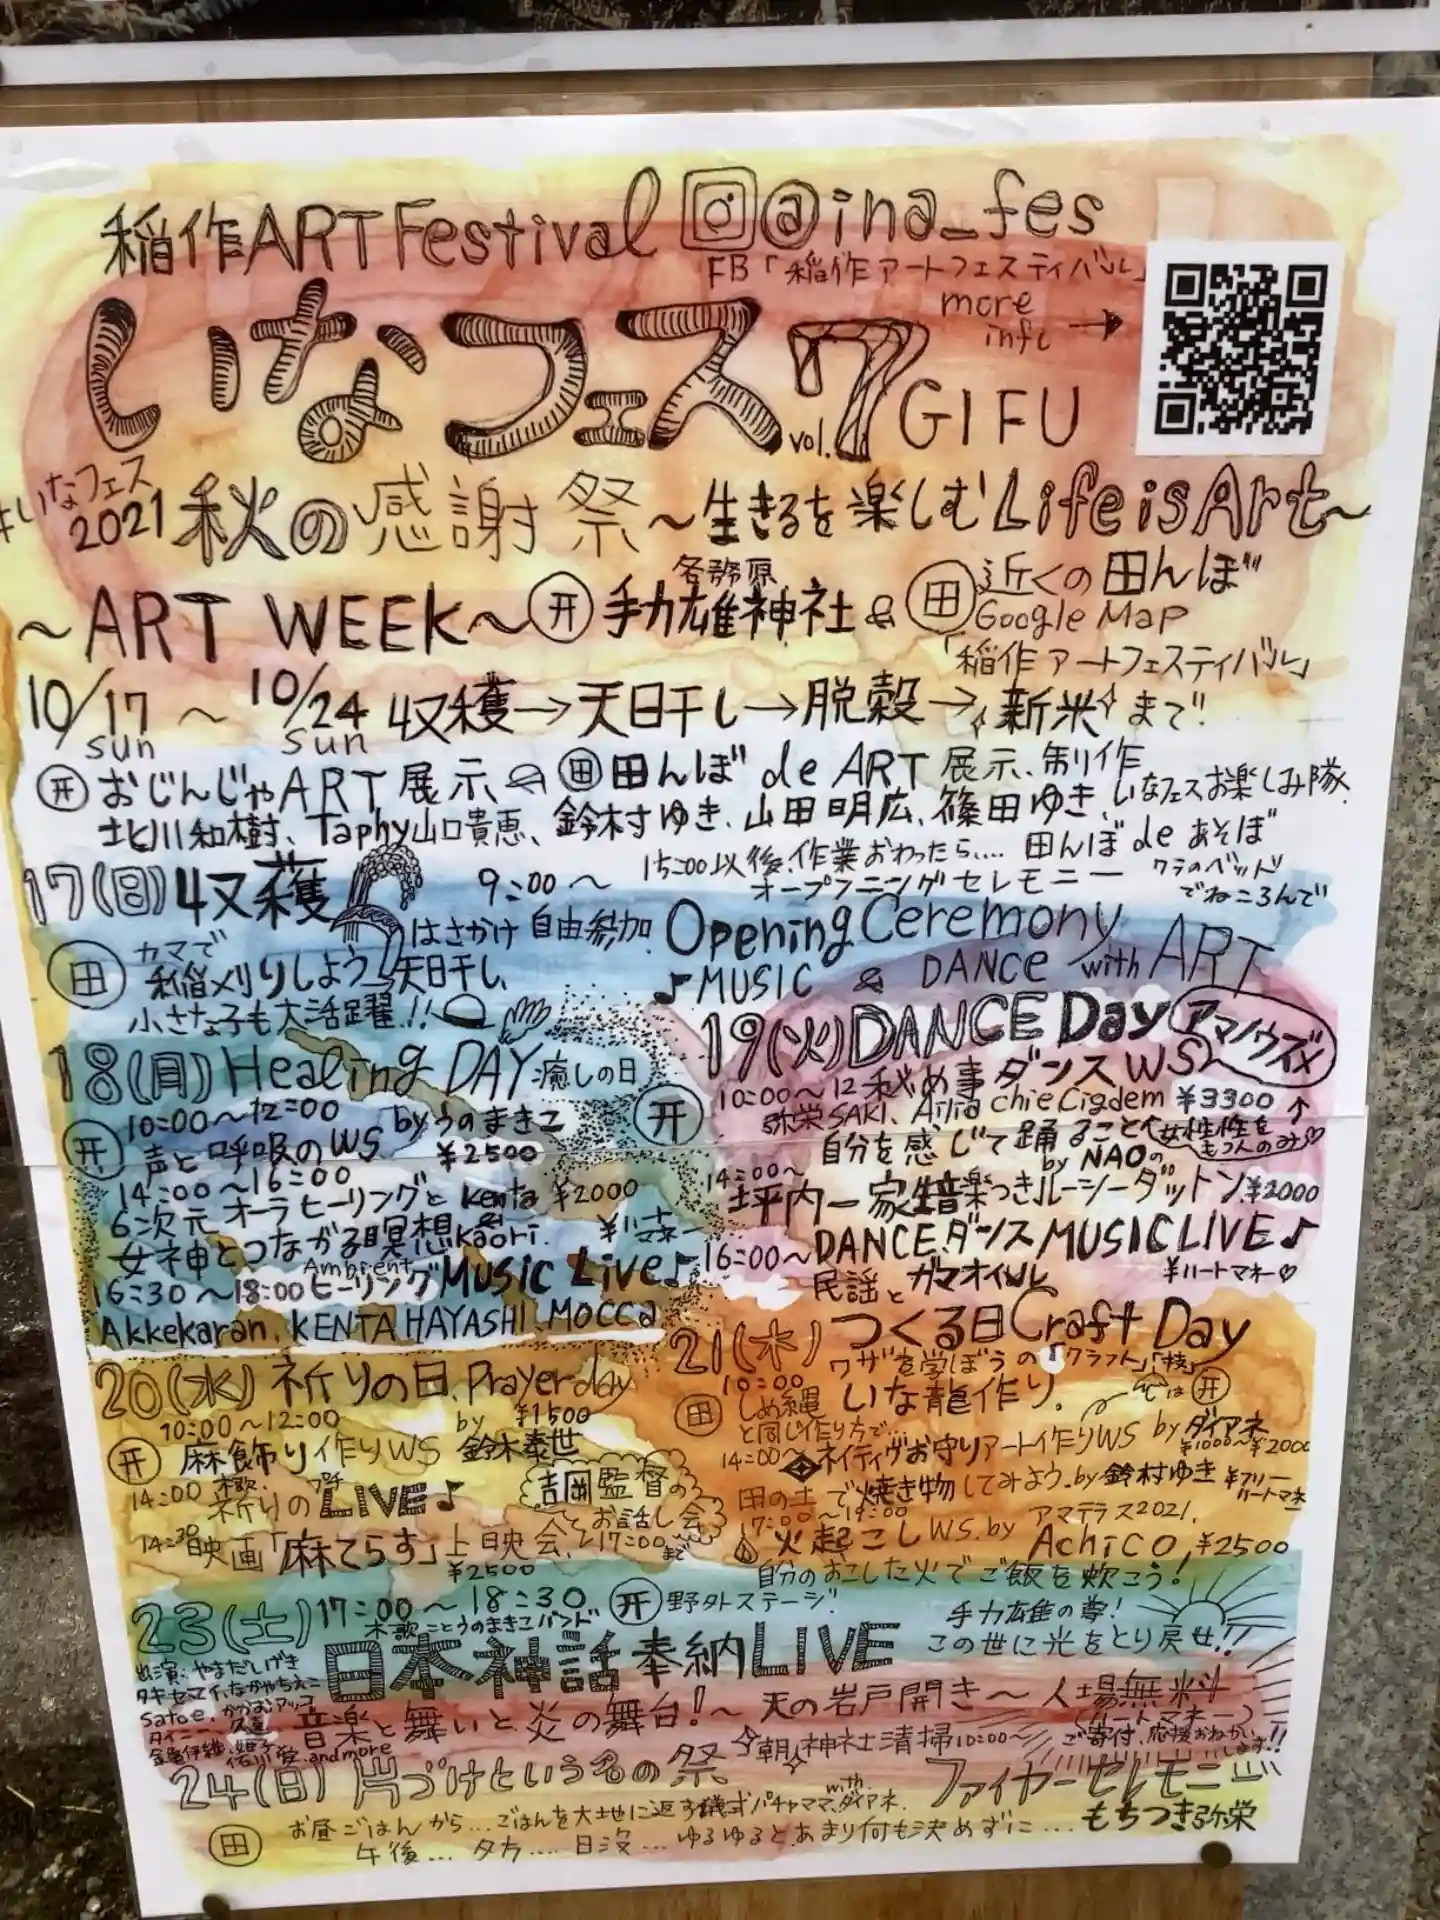 稲作ARTFestival @ina_fes
FB「稲作アートフェスティバル」
more
info →
いなフェス vol.7 GIFU
#いなフェス
2021 秋の感謝祭 ～生きるを楽しむ Life is Art～
～ART WEEK～ 开 各務原 手力雄神社 & 田 近くの田んぼ
Google Map
「稲作アートフェスティバル」
10/17 sun ～ 10/24 sun 収穫→天日干し→脱穀→新米まで!!
开 おじんじゃART展示 & 田 田んぼ de ART 展示、制作
北川和樹、Taphy山口貴恵、鈴村ゆき、山田明広、篠田ゆき、いなフェスお楽しみ隊
17(日) 収穫 9:00～
田 カマで
稲刈りしよう
はさかけ 自由参加
天日干し
小さな子も大活躍!!
15:00以後、作業おわったら.... 田んぼ de あそぼ
オープニングセレモニー ワラのベッド
でねころんで
Opening Ceremony
♪MUSIC & DANCE with ART
18(月) Healing DAY 癒しの日
开 10:00～12:00 by うのまきこ
声と呼吸のWS ¥2500
14:00～16:00
6次元オーラヒーリングと Kenta ¥2000
女神とつながる瞑想 & kaori.
16:30～18:00 Ambient ヒーリング Music Live♪
Akkekaran. KENTA HAYASHI. Mocca
开 19(火) DANCE Day アマノウズメ
10:00～12 秘め事 ダンスWS
弥栄SAKI、Ailia chie Cigdem ¥3300 ↑
自分を感じて踊ること 女性性を
もつ人のみ♡
14:00～ by NAOの
坪内一家生音楽つきルーシーダットン ¥2000
16:00～ DANCE ダンス MUSIC LIVE♪
民謡とガマオイル ¥ハートマネー♡
20(水) 祈りの日、Prayer day
10:00～12:00 by ¥1500
开 麻飾り作りWS 鈴木泰世
14:00 木歌、プチ
祈りのLIVE♪
吉岡監督の
お話し会
14:30 映画「麻てらす」上映会、～17:00まで
¥2500
21(木) つくる日 Craft Day
ワザを学ぼうの「クラフト」「技」
10:00
田 しめ縄 いな龍作り。
と同じ作り方で...
は 开
14:00～ ネイティヴお守りアート作りWS by ダイアネ
¥1000～¥2000
田の土で焼き物してみよう。by 鈴村ゆき ¥フリー
ハートマネ
17:00～19:00 アマテラス2021.
火起こしWS. by Achico, ¥2500
自分のおこした火でご飯を炊こう!
23(土) 17:00～18:30 开 野外ステージ!
木歌ことうのまきこバンド
日本神話奉納LIVE
手力雄の尊!
この世に光をとり戻せ!!
出演: やまだしげき
音楽と舞いと炎の舞台!～天の岩戸開き～ 入場無料
(ハートマネー)
ご寄付、応援おねがいします!!
and more
朝 神社清掃 10:00～
24(日) 片づけという名の祭 ファイヤーセレモニー
田 お昼ごはんから... ごはんを大地に返す儀式 パチャママ with ダイアネ.
もちつき弥栄
午後... 夕方.... 日没... ゆるゆると、あまり何も決めずに...